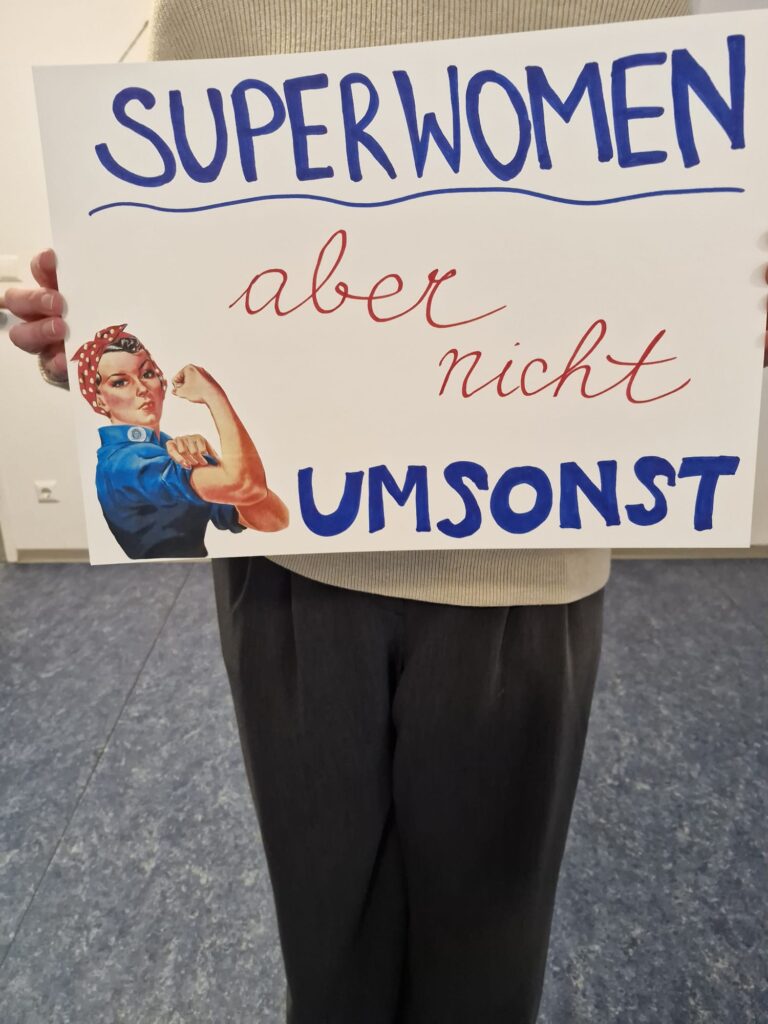 SUPERWOMEN
aber
nicht
UMSONST